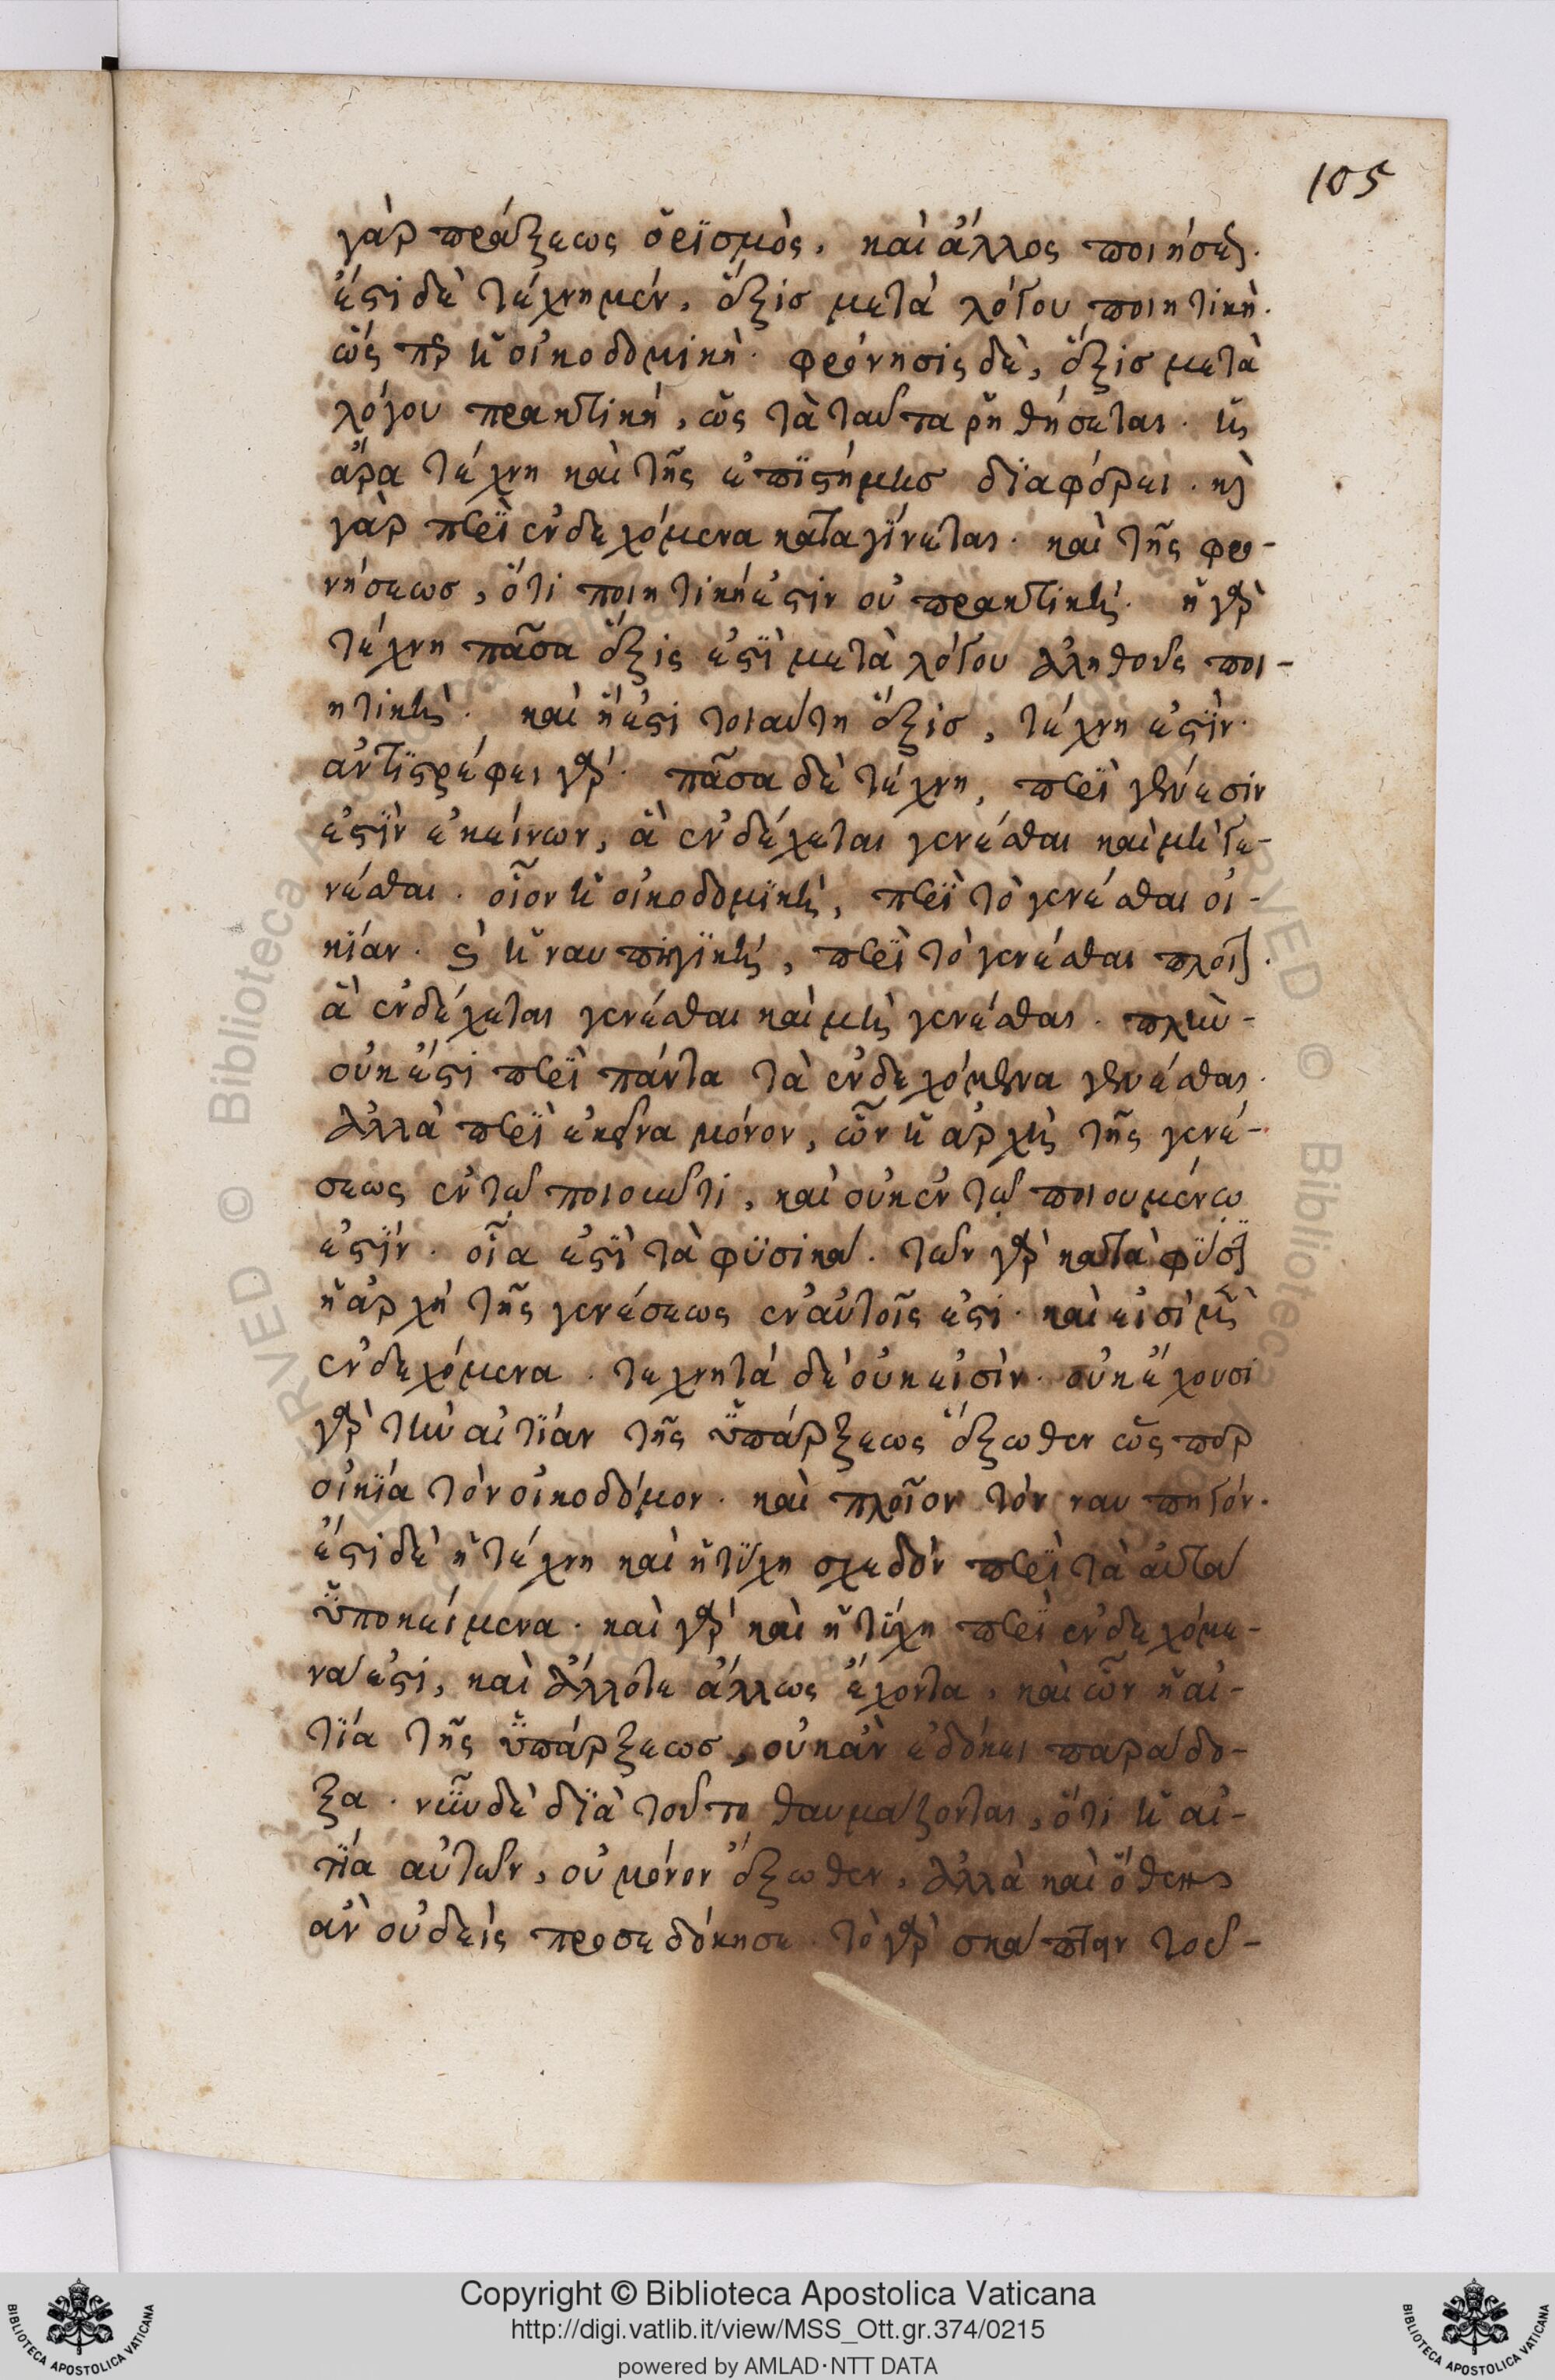 105
γὰρ πράξεως ὁρϊσμὸς, καὶ ἄλλος ποιήσεως.
ἔστι δὲ τέχνη μέν, ἕξισ μετὰ λόγου ποιητικὴ.
ὥς περ ἡ οἰκοδομικὴ. φρόνησις δὲ, ἕξισ μετὰ
λόγου πρακτικὴ, ὡς τὰ ταῦτα ῥηθήσεται. ἡ
ἄρα τέχνη καὶ τῆς ἐπϊστήμησ δϊαφέρει. καὶ
γὰρ περὶ ἐνδεχόμενα καταγίνεται. καὶ τῆς φρο-
νήσεωσ, ὅτι ποιητική ἐστιν οὐ πρακτικὴ. ἡ γὰρ
τέχνη πᾶσα ἕξις ἐστῒ μετὰ λόγου ἀληθοῦς ποι-
ητικὴ. καὶ ἥ ἐστι τοιαύτη ἕξισ, τέχνη ἐστῒν.
ἀντϊστρέφει γάρ. πᾶσα δὲ τέχνη, περῒ γένεσίν
ἐστῒν ἐκείνων, ἃ ἐνδέχεται γενέσθαι καὶ μὴ γε-
νέσθαι. οἷον ἡ οἰκοδομϊκὴ, περῒ τὸ γενέσθαι οἰ-
κίαν. καὶ ἡ ναυπηγϊκὴ, περῒ τὸ γενέσθαι πλοῖον.
ἃ ἐνδέχεται γενέσθαι καὶ μὴ γενέσθαι. πλὴν
οὐκ ἔστι περῒ πάντα τὰ ἐνδεχόμενα γενέσθαι.
ἀλλὰ περῒ ἐκεῖνα μόνον, ὧν ἡ ἀρχὴ τῆς γενέ-
σεως ἐν τῶ ποιοῦντι, καὶ οὐκ ἐν τῶ ποιουμένω
ἐστῒν. οἷα ἐστῒ τὰ φϋσικά. τῶν γὰρ κατὰ φύσιν
ἡ ἀρχή τῆς γενέσεως ἐν αὐτοῖς ἐστι. καὶ εἰσὶ μὲν
ἐνδεχόμενα. τεχνητά δὲ οὐκ εἰσὶν. οὐκ ἔχουσι
γὰρ τὴν αἰτΐαν τῆς ὑπάρξεως ἔξωθεν ὥς περ
οἰκΐα τὸν οἰκοδόμον. καὶ πλοῖον τόν ναυπηγόν.
ἔστι δὲ ἡ τέχνη καὶ ἡ τύχη σχεδὸν περῒ τὰ αὐτὰ
ὑποκείμενα. καὶ γὰρ καὶ ἡ τύχη περῒ ἐνδεχόμε-
να ἐστι, καὶ ἄλλοτε ἄλλως ἔχοντα, καὶ ὧν ἡ αἰ-
τΐα τῆς ὑπάρξεωσ, οὐκ ἂν ἐδόκει παράδο-
ξα. νῦν δὲ δϊὰ τοῦτο θαυμάζονται, ὅτι ἡ αἰ-
τΐα αὐτῶν, οὐ μόνον ἔξωθεν, ἀλλὰ καὶ ὅθεν
ἂν οὐδεὶς προσεδόκησε. τὸ γὰρ σκάπτειν τοῦ-
Copyright © Biblioteca Apostolica Vaticana
http://digi.vatlib.it/view/MSS_Ott.gr.374/0215
powered by AMLAD·NTT DATA